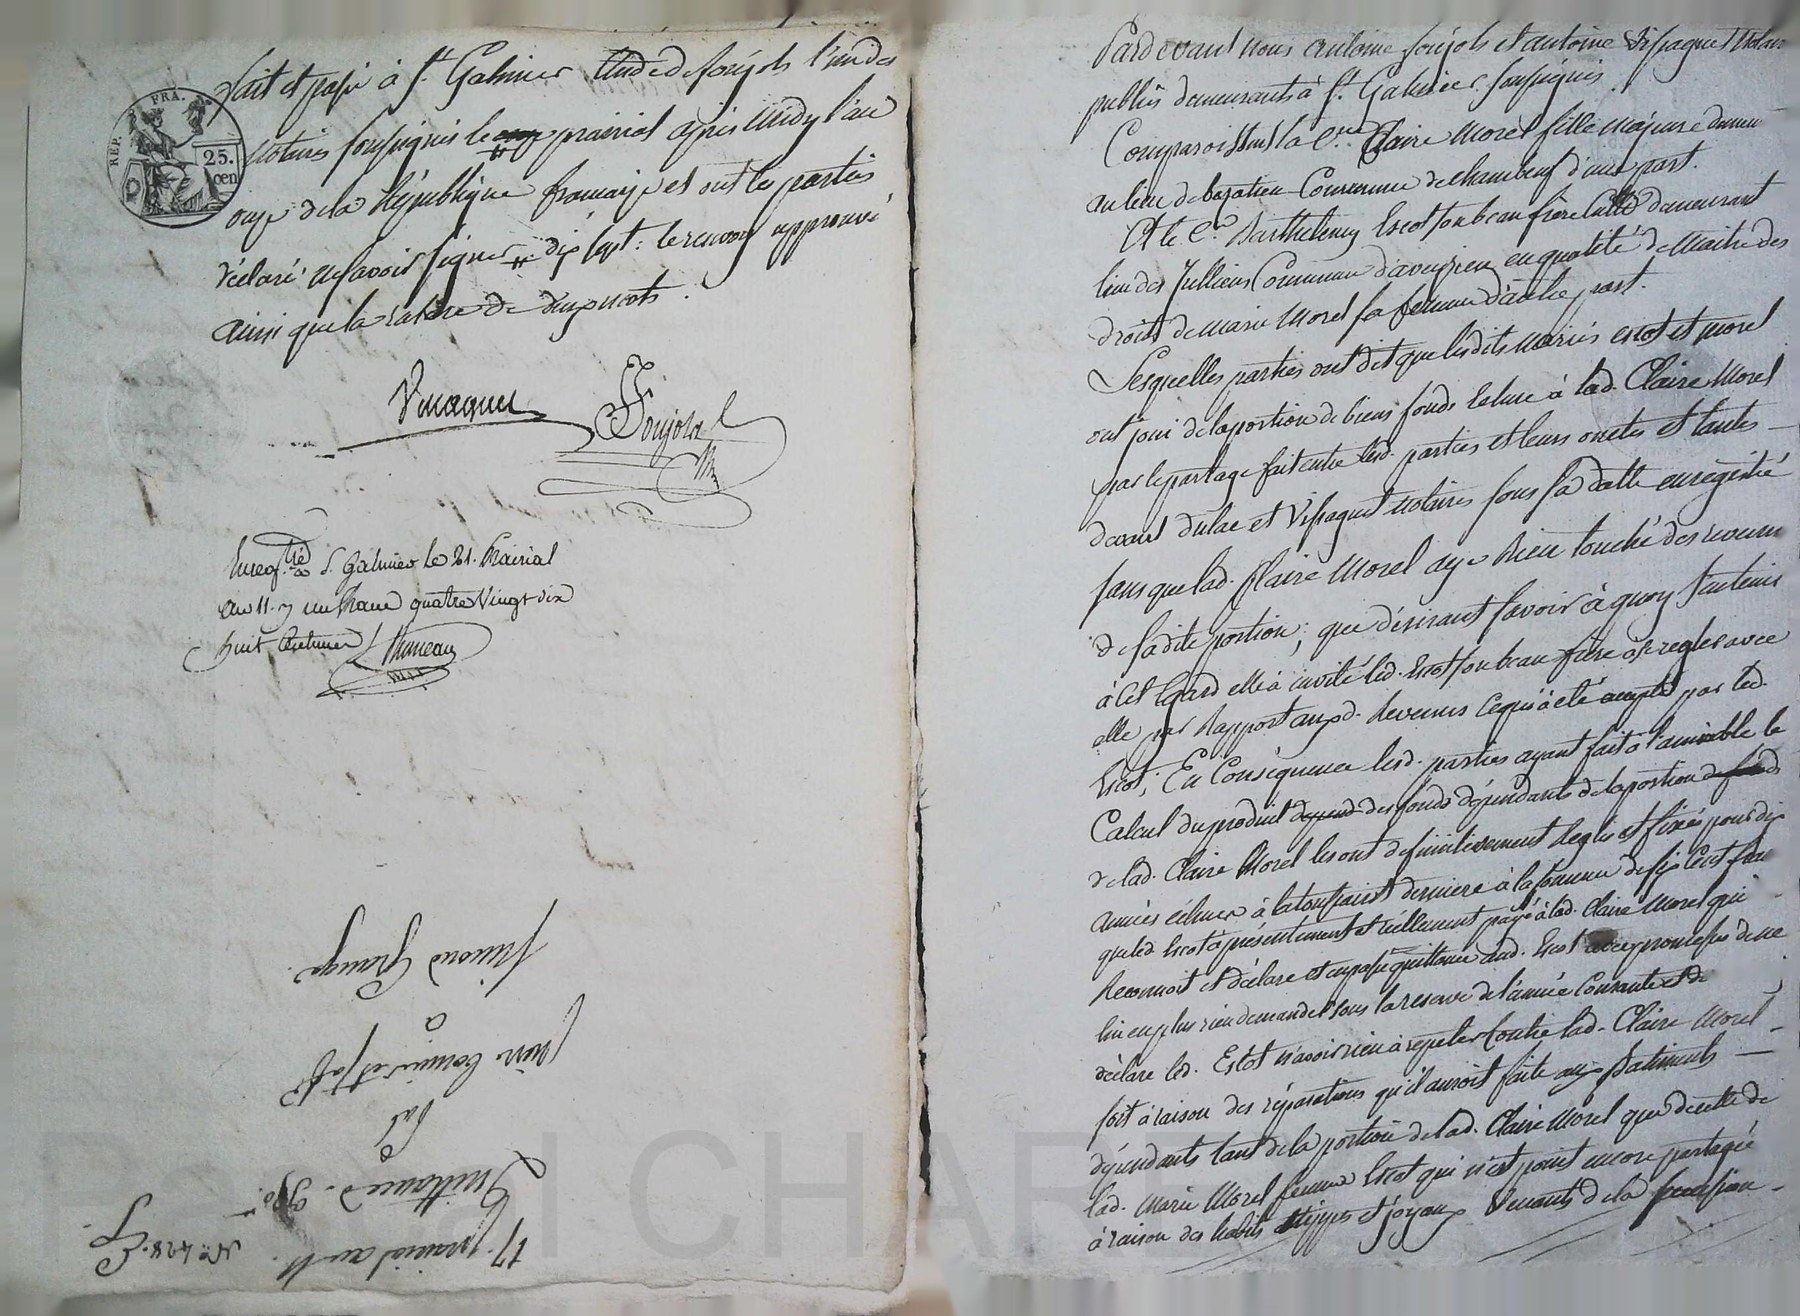 fait et passé à St. Galmier étude de Soujols l'un des
notaires soussignés le prairial après midy l'an
onze de la République française et ont les parties
déclaré ne savoir signer dix sept : le renvoy approuvé
ainsi que la rature de deux mots .
Soujols
REP. FRA.
25.
cen
à St. Galmier le 21. Prairial
an 11. un franc quatre vingt dix
huit centimes
17. prairial an 11.
Quittance d.
par
à
N.° 428.
Pardevant nous antoine Soujols et antoine Notaires
publics demeurants à St. Galmier soussignés
Comparoissent la C.ne Claire Morel fille majeure demeu
au lieu de Commune de chambeuf d'une part.
Et le C.en Barthelemy Escot son beau frère demeurant
lieu des Julliens Commune d'aveizieu en qualité de Maitre des
droits de Marie Morel sa femme d'autre part.
Lesquelles parties ont dit que lesdits mariés escot et morel
ont joui de la portion de biens fonds échue à lad. Claire Morel
par le partage fait entre lesd. parties et leurs oncles et tantes
devant dulac et notaires sous sa datte enregistré
sans que lad. Claire Morel aye rien touché des revenus
de sadite portion ; que désirant savoir à quoy s'entenir
à cet égard elle a invité led. Escot son beau frère à se regler avec
elle par Rapport auxd. Revenus ce qui a été accepté par led.
Escot ; En Conséquence lesd. parties ayant fait à l'aimable le
Calcul du produit des fonds dépendants de la portion de fonds
de lad. Claire Morel les ont définitivement reglés et fixés pour dix
années échues à la toussaint derniere à la somme de six cent fran
que led. Escot a présentement et réellement payé à lad. Claire Morel qui
Reconnoit et déclare et en passe quittance aud. Escot avec promesse de ne
lui en plus rien demander sous la reserve de l'année Courante et de
déclare led. Escot n'avoir rien à repeter contre lad. Claire Morel
soit à raison des réparations qu'il auroit faite aux Batiments
dépendants tant de la portion de lad. Claire Morel que de celle de
lad. Marie Morel femme Escot qui n'est point encore partagée
à raison des habits nippes et joyaux Venants de la succession